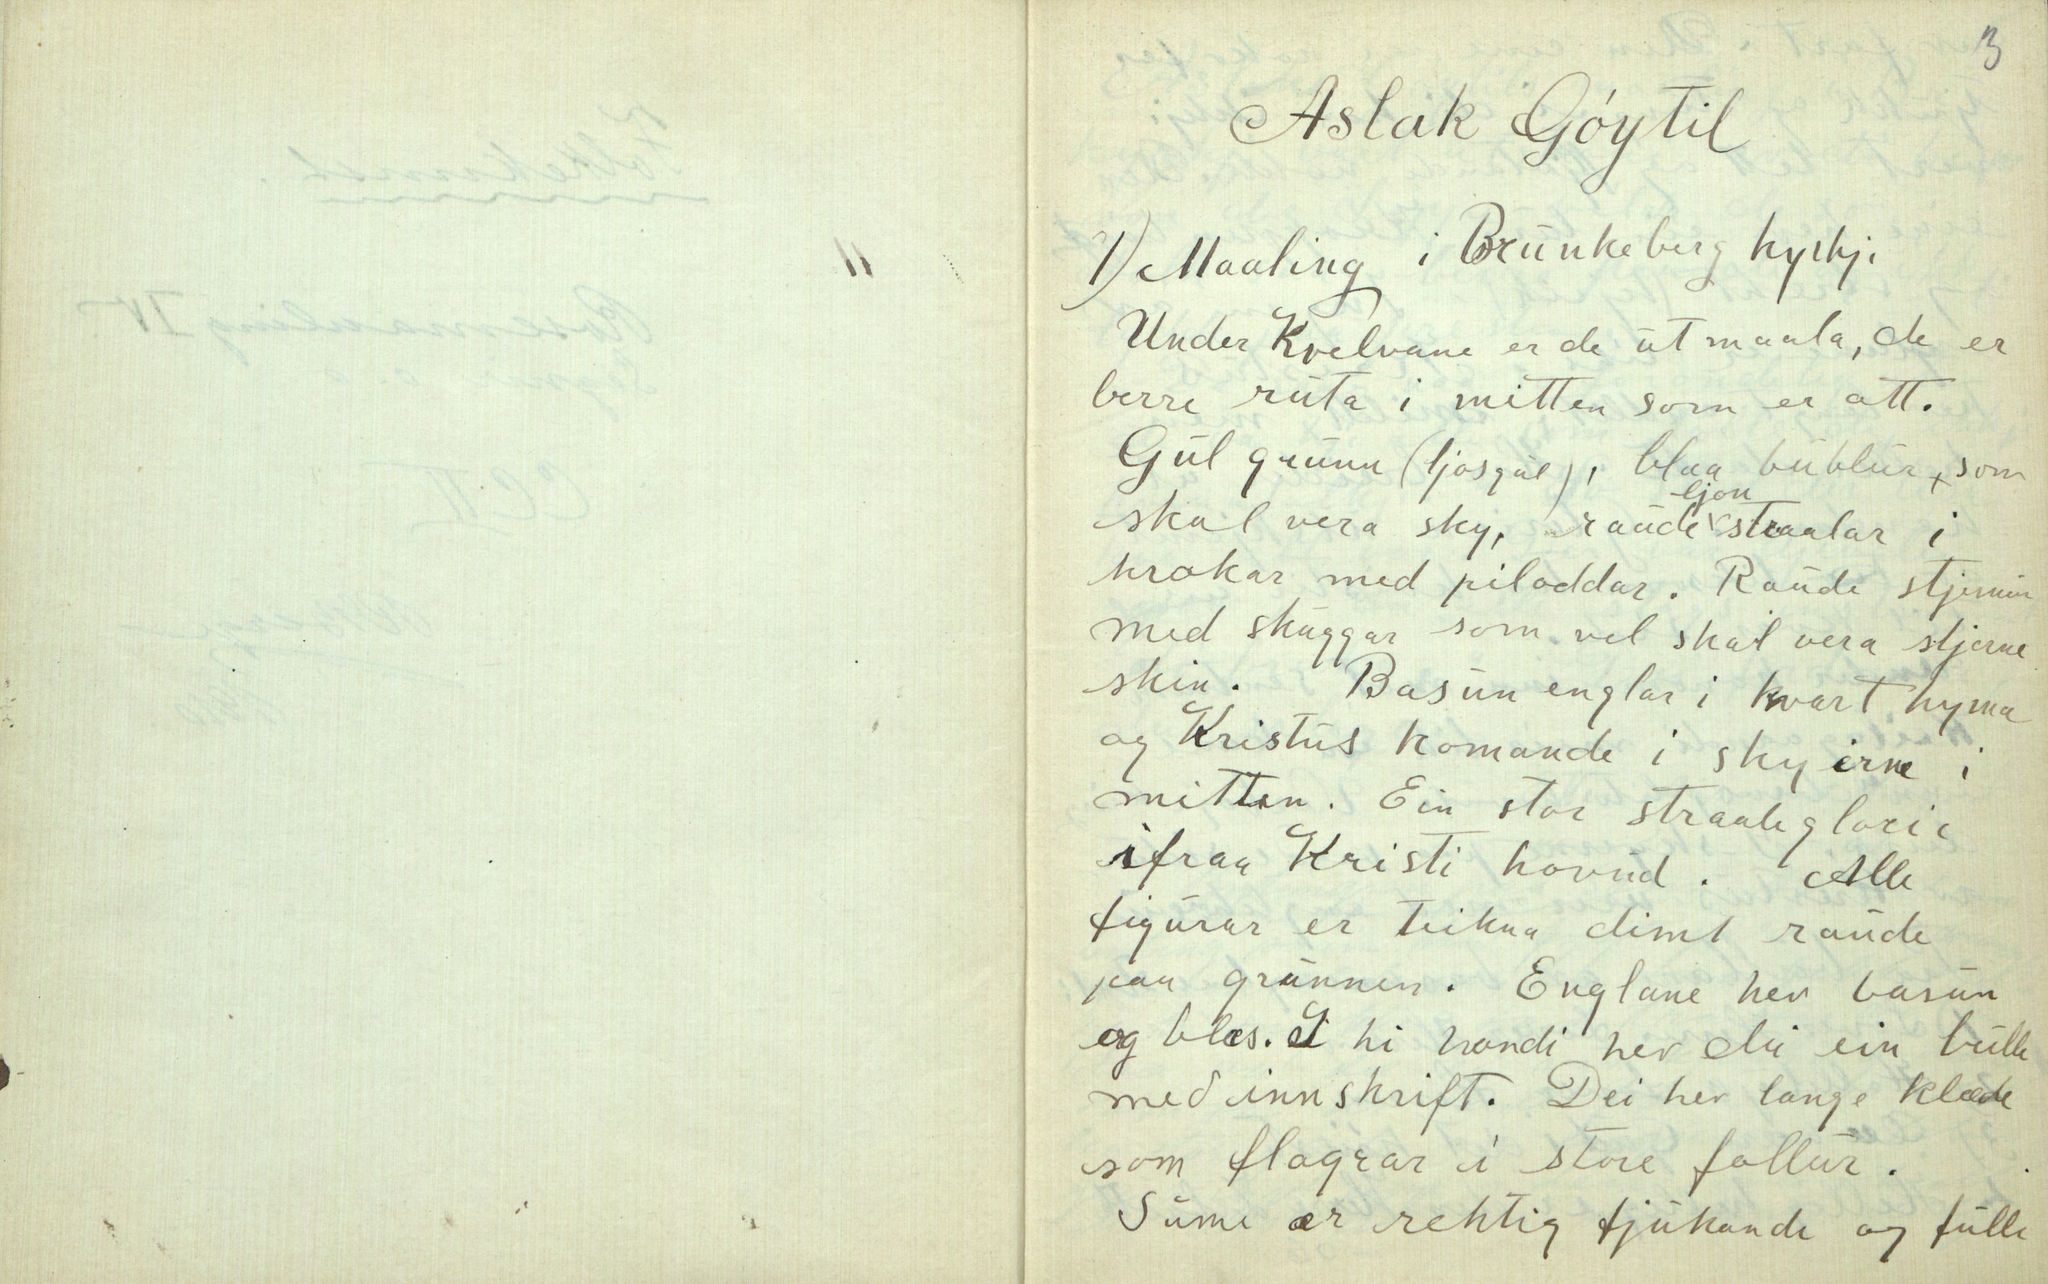 3
Aslak Góytil
1) Maaling i Brunkeberg kyrkji
Under Kvelvane er de utmaala, de er
berre ruta i mitten som er att.
Gul grunn (ljosgul), blaa bublur, som
skal vera sky, raude ljon straalar i
krokar med piloddar. Raude stjernur
med skuggar som vel skal vera stjerne
skin. Basun englar i kvart hyrna
og Kristus komande i skyirne i
mitten. Ein stor straaleglorie
ifraa Kristi hovud. Alle
figurar er teikna dimt raude
paa grunnen. Englane hev basun
og blæs. I hi handi hev dei ein bulle
med innskrift. Dei hev lange klæde
som flagrar i store fallur.
Sume er rektig fjukande og fulle